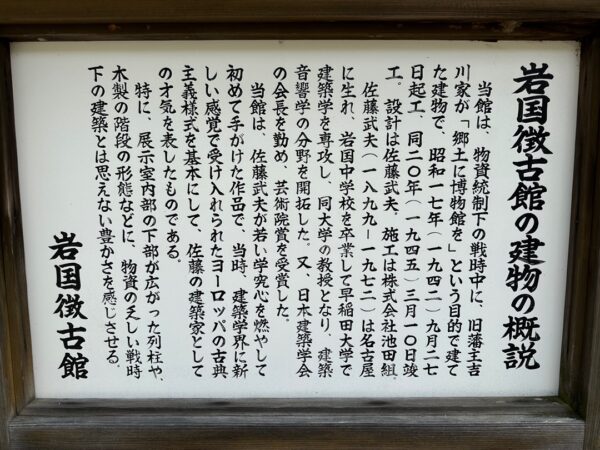 岩国徴古館の建物の概説
当館は、物資統制下の戦時中に、旧藩主吉
川家が「郷土に博物館を」という目的で建て
た建物で、昭和一七年(一九四二)九月二七
日起工、同二〇年(一九四五)三月一〇日竣
工。設計は佐藤武夫。施工は株式会社池田組。
佐藤武夫(一八九九ー一九七二)は名古屋
に生れ、岩国中学校を卒業して早稲田大学で
建築学を専攻し、同大学の教授となり、建築
音響学の分野を開拓した。又、日本建築学会
の会長を勤め、芸術院賞を受賞した。
当館は、佐藤武夫が若い学究心を燃やして
初めて手がけた作品で、当時、建築学界に新
しい感覚で受け入れられたヨーロッパの古典
主義様式を基本にして、佐藤の建築家として
の才気を表したものである。
特に、展示室内部の下部が広がった列柱や、
木製の階段の形態などに、物資の乏しい戦時
下の建築とは思えない豊かさを感じさせる。
岩国徴古館